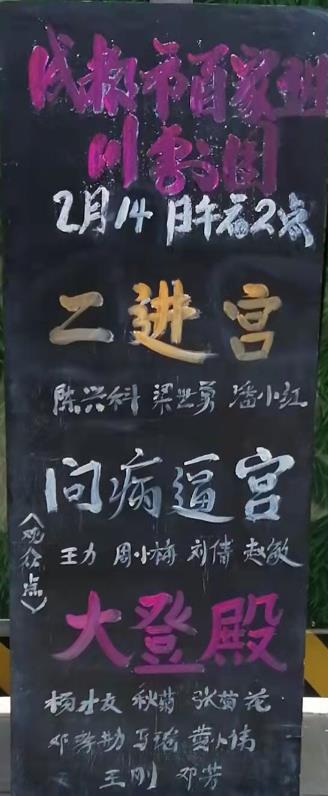 成都市百家班
川剧团
2月14日午后2点
二进宫
陈兴科 梁世勇 潘小红
问病逼宫
王力 周小梅 刘倩 赵敏
(观众点)
大登殿
杨才友 秋菊 张菊花
邓孝勋 马瑶 黄小伟
王刚 邓芳